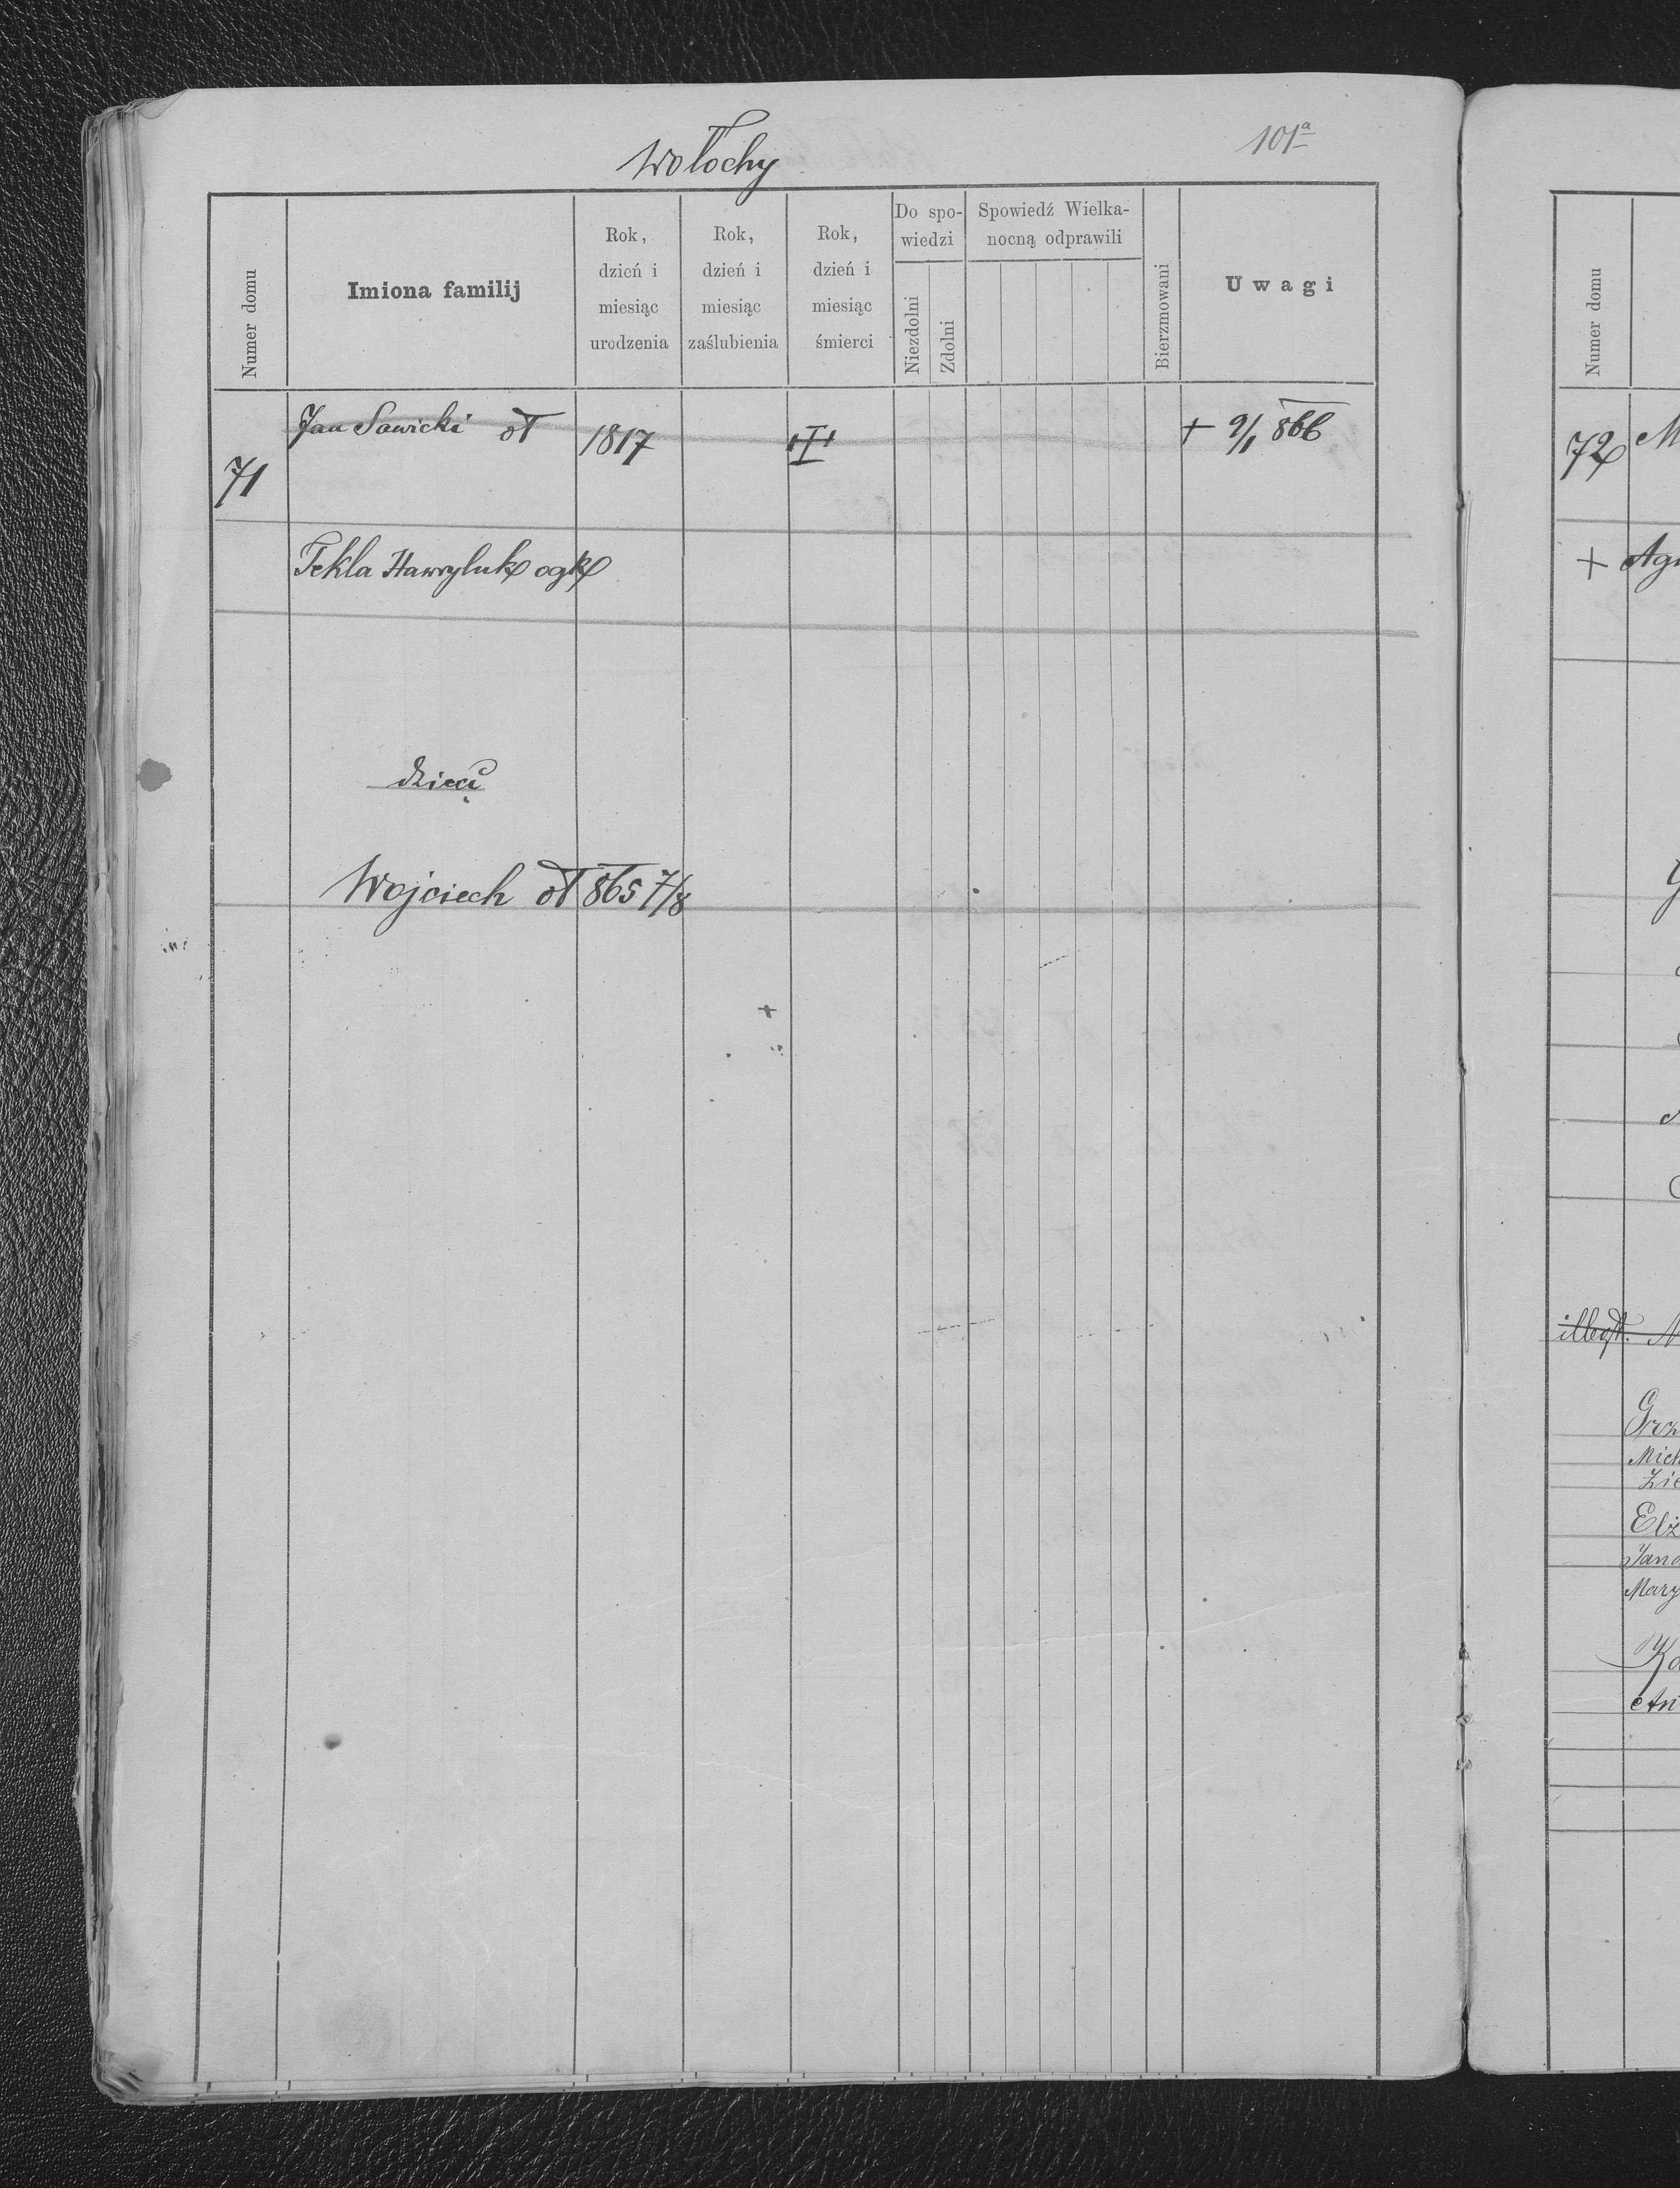 Wołochy
101a
Numer domu
Imiona familij
Rok, dzień i miesiąc urodzenia
Rok, dzień i miesiąc zaślubienia
Rok, dzień i miesiąc śmierci
Do spo-
wiedzi
Niezdolni
Zdolni
Spowiedź Wielka-
nocną odprawili
Bierzmowani
Uwagi
71
Jan Sawicki 1817 + 9/1 866
Tekla Hawryluk ogk
dzieci
Wojciech 865 7/8
Numer domu
72 M
+ Agn
illegt. N
Grz
Mich
Zie
Elż
Jano
Mary
Ko
An